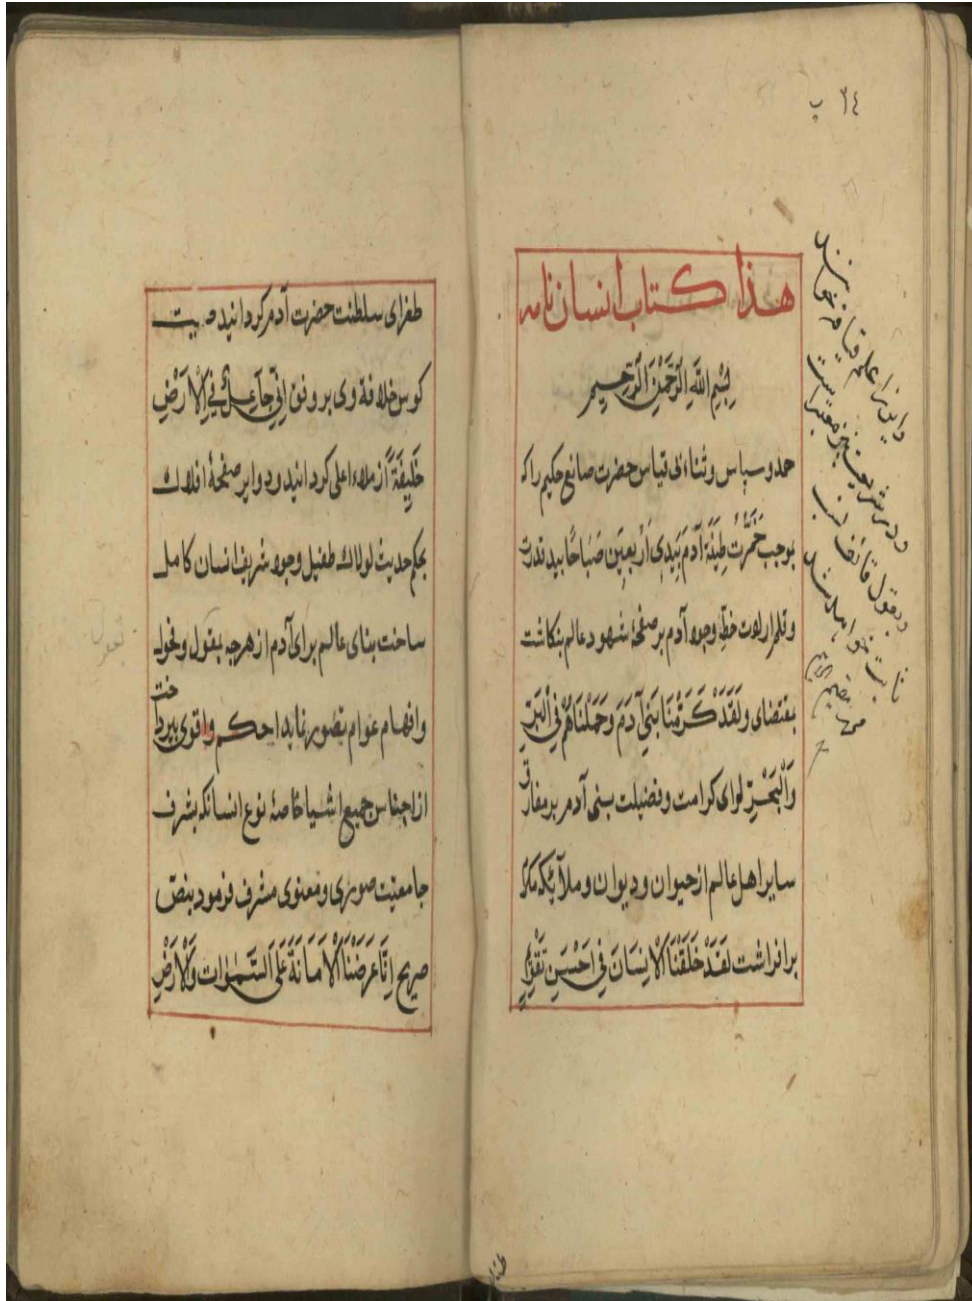 ٢٤ ب
هذا كتاب انسان نامه
بِسْمِ اللَّهِ الرَّحْمَنِ الرَّحِيمِ
حمد و سپاس و ثناء بی قیاس حضرت صانع حکیم را که
بموجب خَمَّرْتُ طِينَةَ آدَمَ بِيَدِي أَرْبَعِينَ صَبَاحًا بید قدرت
و قلم ارادت خطّ وجود آدم بر صفحهٔ شهود عالم بنکاشت
بمقتضای وَلَقَدْ كَرَّمْنَا بَنِي آدَمَ وَحَمَلْنَاهُمْ فِي الْبَرِّ
وَالْبَحْرِ لوای کرامت و فضیلت بنی آدم بر مفارق
سایر اهل عالم از حیوان و دیوان و ملائکه مکرّ
برافراشت لَقَدْ خَلَقْنَا الْاِنسَانَ فِي اَحْسَنِ تَقْوِيمٍ
و این را علم قیافه
و در شریعت نیز معتبر است
و بقول قائف
ثابت
طغرای سلطنت حضرت آدم کردانید صیت
کوس خلافة وی بر وفق اِنِّي جَاعِلٌ فِي الْاَرْضِ
خَلِيفَةً از ملاء اعلی کردانید و دوایر صفحهٔ افلاك
بحکم حدیث لولاك طفیل وجود شریف انسان کامل
ساخت بنای عالم برای آدم از هرچه بعقول و فحول
و افهام عوام تصور نماید احکم و اقوی پرداخت
از اجناس جمیع اشیا خاصهٔ نوع انسانکه بشرف
جامعیّت صوری و معنوی مشرف فرمود بنصّ
صریح اِنَّا عَرَضْنَا الْاَمَانَةَ عَلَى السَّمٰوَاتِ وَالْاَرْضِ